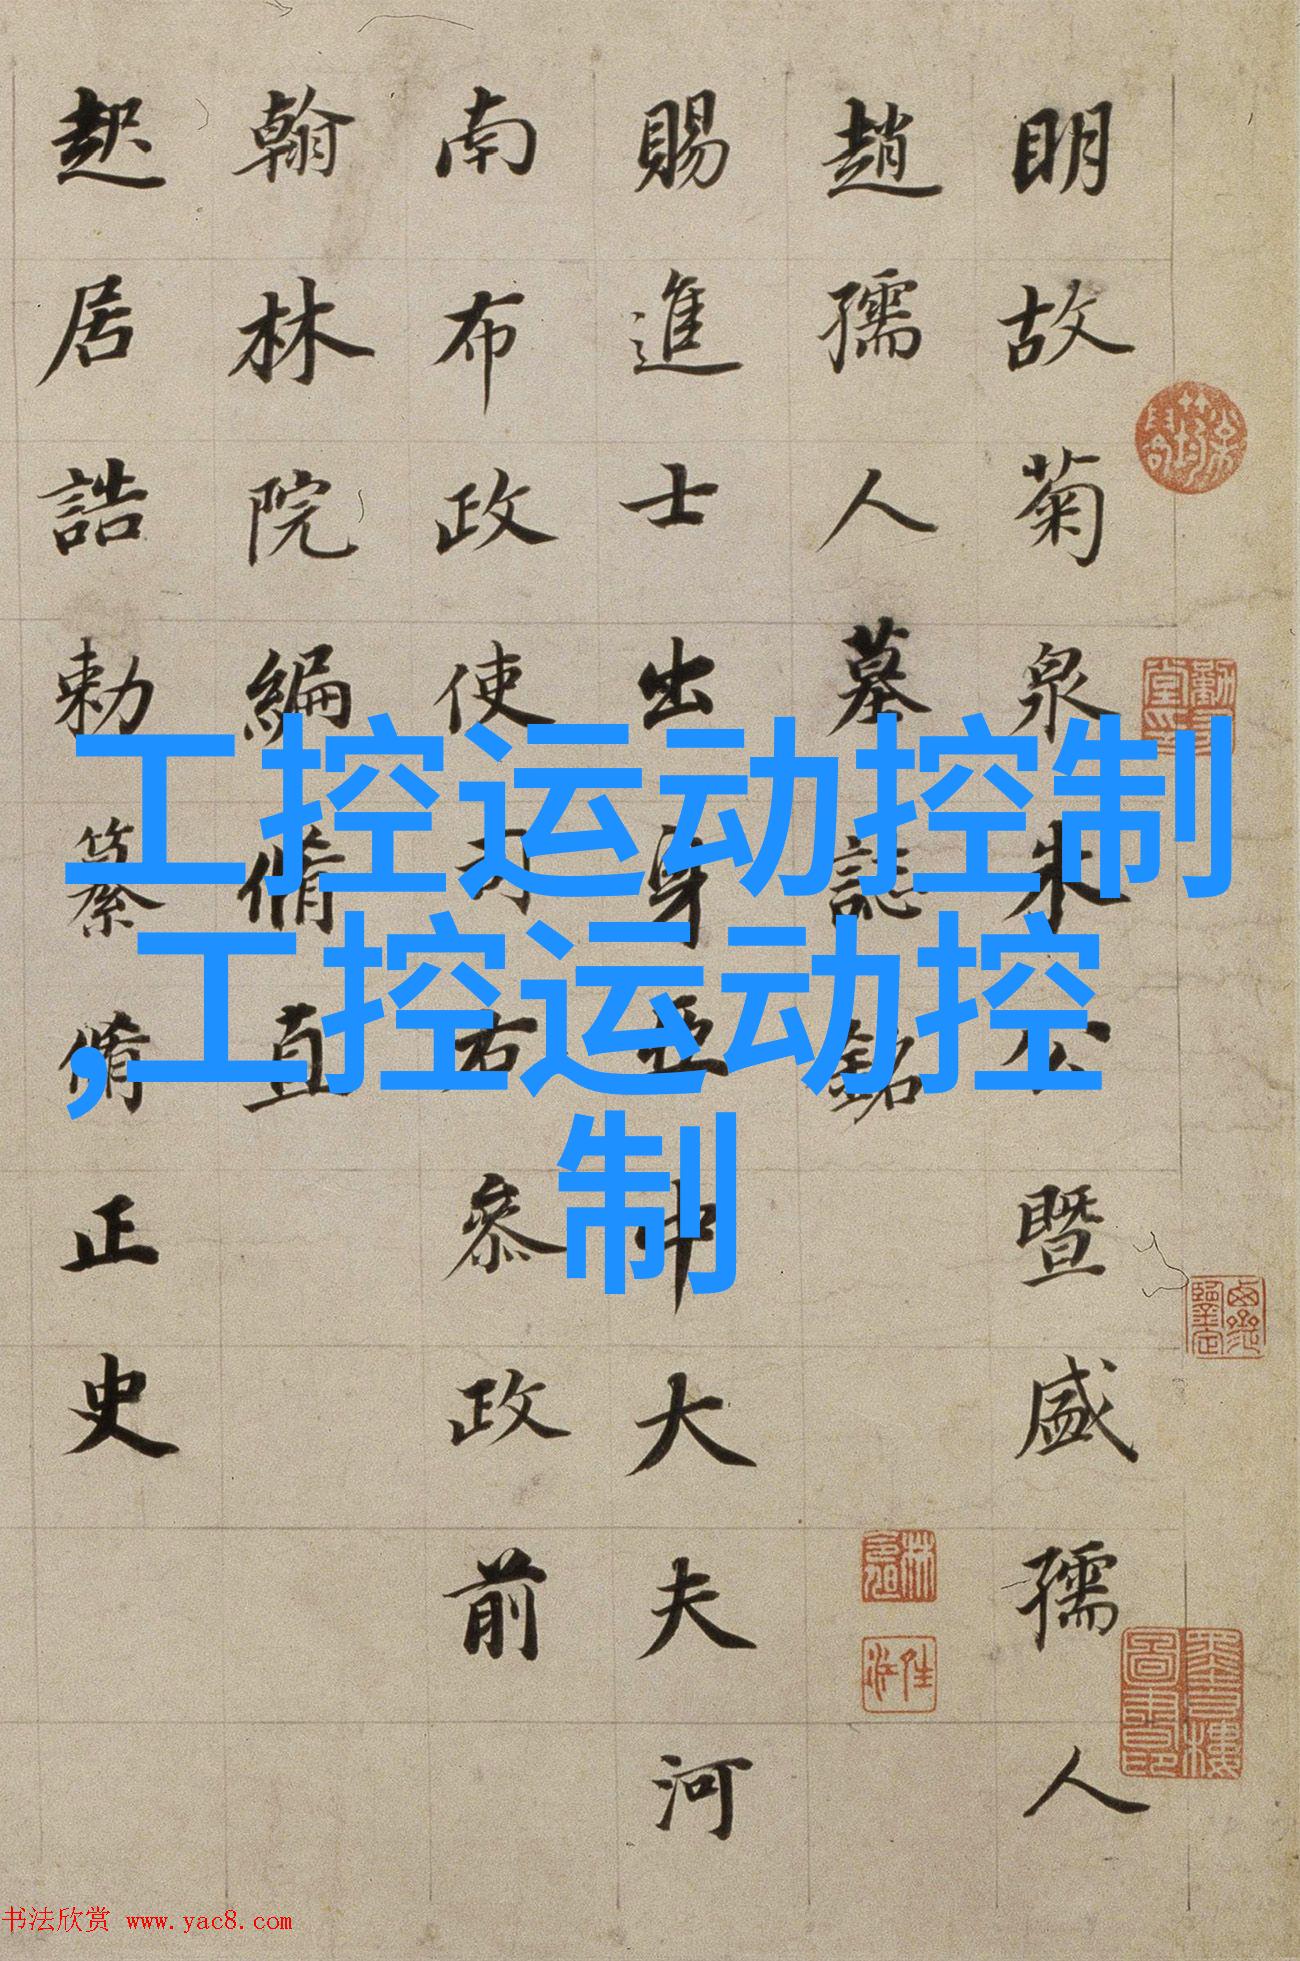 明故菊泉朱公暨盛孺人
趙孺人墓誌銘
賜進士出身亞中大夫河
南布政使司右叅政前
翰林院編脩直
起居誥勅纂脩正史
工控运动控制
,工控运动控
制
书法欣赏 www.yac8.com